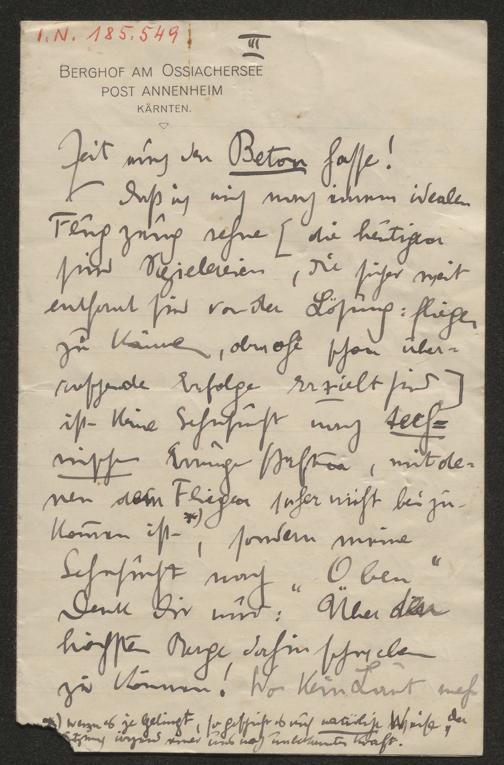 I.N. 185.549
III
BERGHOF AM OSSIACHERSEE
POST ANNENHEIM
KÄRNTEN.
Zeit auch den Beton hasse!
Daß ich mich nach einem idealen
Flugzeug sehne [die heutigen
sind Spielereien, die sicher weit
entfernt sind von der Lösung: fliegen
zu können, obwohl schon über-
raschende Erfolge erzielt sind]
ist keine Sehnsucht nach tech-
nischen Errungenschaften, mit de-
nen dem Fliegen sicher nicht bei zu-
kommen ist *), sondern meine
Sehnsucht nach "Oben"
Denk Dir nur: Über den
höchsten Berge dahin schweben
zu können! Wo kein Laut mehr
*) wenn es je gelingt, so geschieht es auf natürliche Weise, der
irgend einer uns noch unbekannten Kraft.